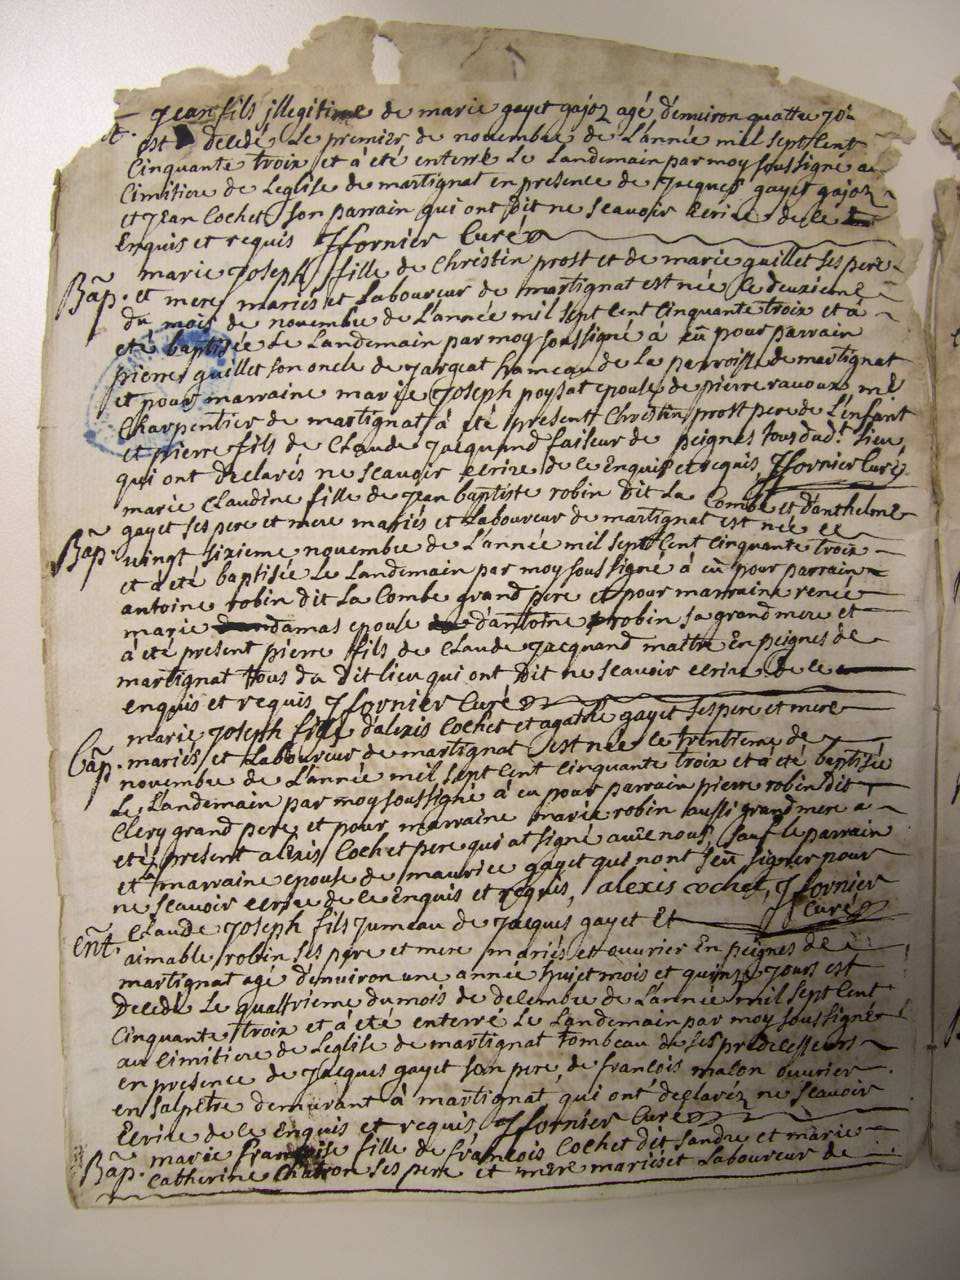 Jean fils illegitime de marie gayet gajoz agé d'environ quattre jōs
Ent. est decedé Le premier de novembre de L'année mil sept Cent
Cinquante troix et à été enterré Le Landemain par moy soussigné au
Cimitiere de Leglise de martignat en presence de Jacques gayet gajoz
et Jean Cochet son parrain qui ont dit ne scavoir ecrire de ce
Enquis et requis Jfornier Curé
marie Joseph fille de Christin prost et de marie guillet ses pere
Bāp. et mere mariés et Laboureur de martignat est née Le deuzieme
du mois de novembre de L'année mil sept Cent Cinquante troix et à
eté baptisée Le Landemain par moy soussigné à eū pour parrain
pierre guillet son oncle de Jargeat hameau de La parroisse de martignat
et pour marraine marie Joseph poysat epouse de pierre ravoux me
Charpentier de martignat à été present Christin prost pere de L'enfant
et pierre fils de Claude Jacquand faiseur de peignes tous dud.t Lieu
qui ont declarés ne scavoir ecrire de ce Enquis et requis Jfornier Curé
marie Claudine fille de Jean baptiste robin dit La Combe et d'anthelme
gayet ses pere et mere mariés et Laboureur de martignat est née Le
Bāp. vingt sixieme novembre de L'année mil sept Cent Cinquante troix
et à été baptisée Le Landemain par moy soussigné à eū pour parrain
antoine robin dit La Combe grand pere et pour marraine renée
marie damas epouse d'antoine robin sa grand mere et
à été present pierre fils de Claude Jacquand maitre En peignes de
martignat tous du dit Lieu qui ont dit ne scavoir ecrire de ce
enquis et requis Jfornier Curé
marie Joseph fille d'alexis Cochet et agathe gayet ses pere et mere
Bāp. mariés et Laboureur de martignat est née Le trentieme de
novembre de L'année mil sept Cent Cinquante troix et à été baptisée
Le Landemain par moy soussigné à eu pour parrain pierre robin dit
Clery grand pere et pour marraine marie robin aussi grand mere a
eté present alexis Cochet pere qui at signé avec nous, sauf Le parrain
et La marraine epouse de maurice gayet qui n'ont sceū signer pour
ne scavoir ecrire de ce Enquis et requis, alexis cochet, Jfornier
Curé
Claude Joseph fils Jumeau de Jacques gayet Et
eñt. aimable robin ses pere et mere mariés et ouvrier En peignes de
martignat agé d'environ une année huict mois et quinze Jours est
Decedé Le quattrieme du mois de decembre de L'année mil sept Cent
Cinquante troix et à été enterré Le Landemain par moy soussigné
au Cimitiere de Leglise de martignat tombeau de ses predecesseurs
en presence de Jacques gayet son pere, de francois malon ouvrier
en salpetre demurant à martignat, qui ont declarez ne scavoir
Ecrire de ce Enquis et requis Jfornier Curé
marie françoise fille de françois Cochet dit sandre et marie
Bāp. Catherine Chatron ses pere et mere mariés et Laboureur de